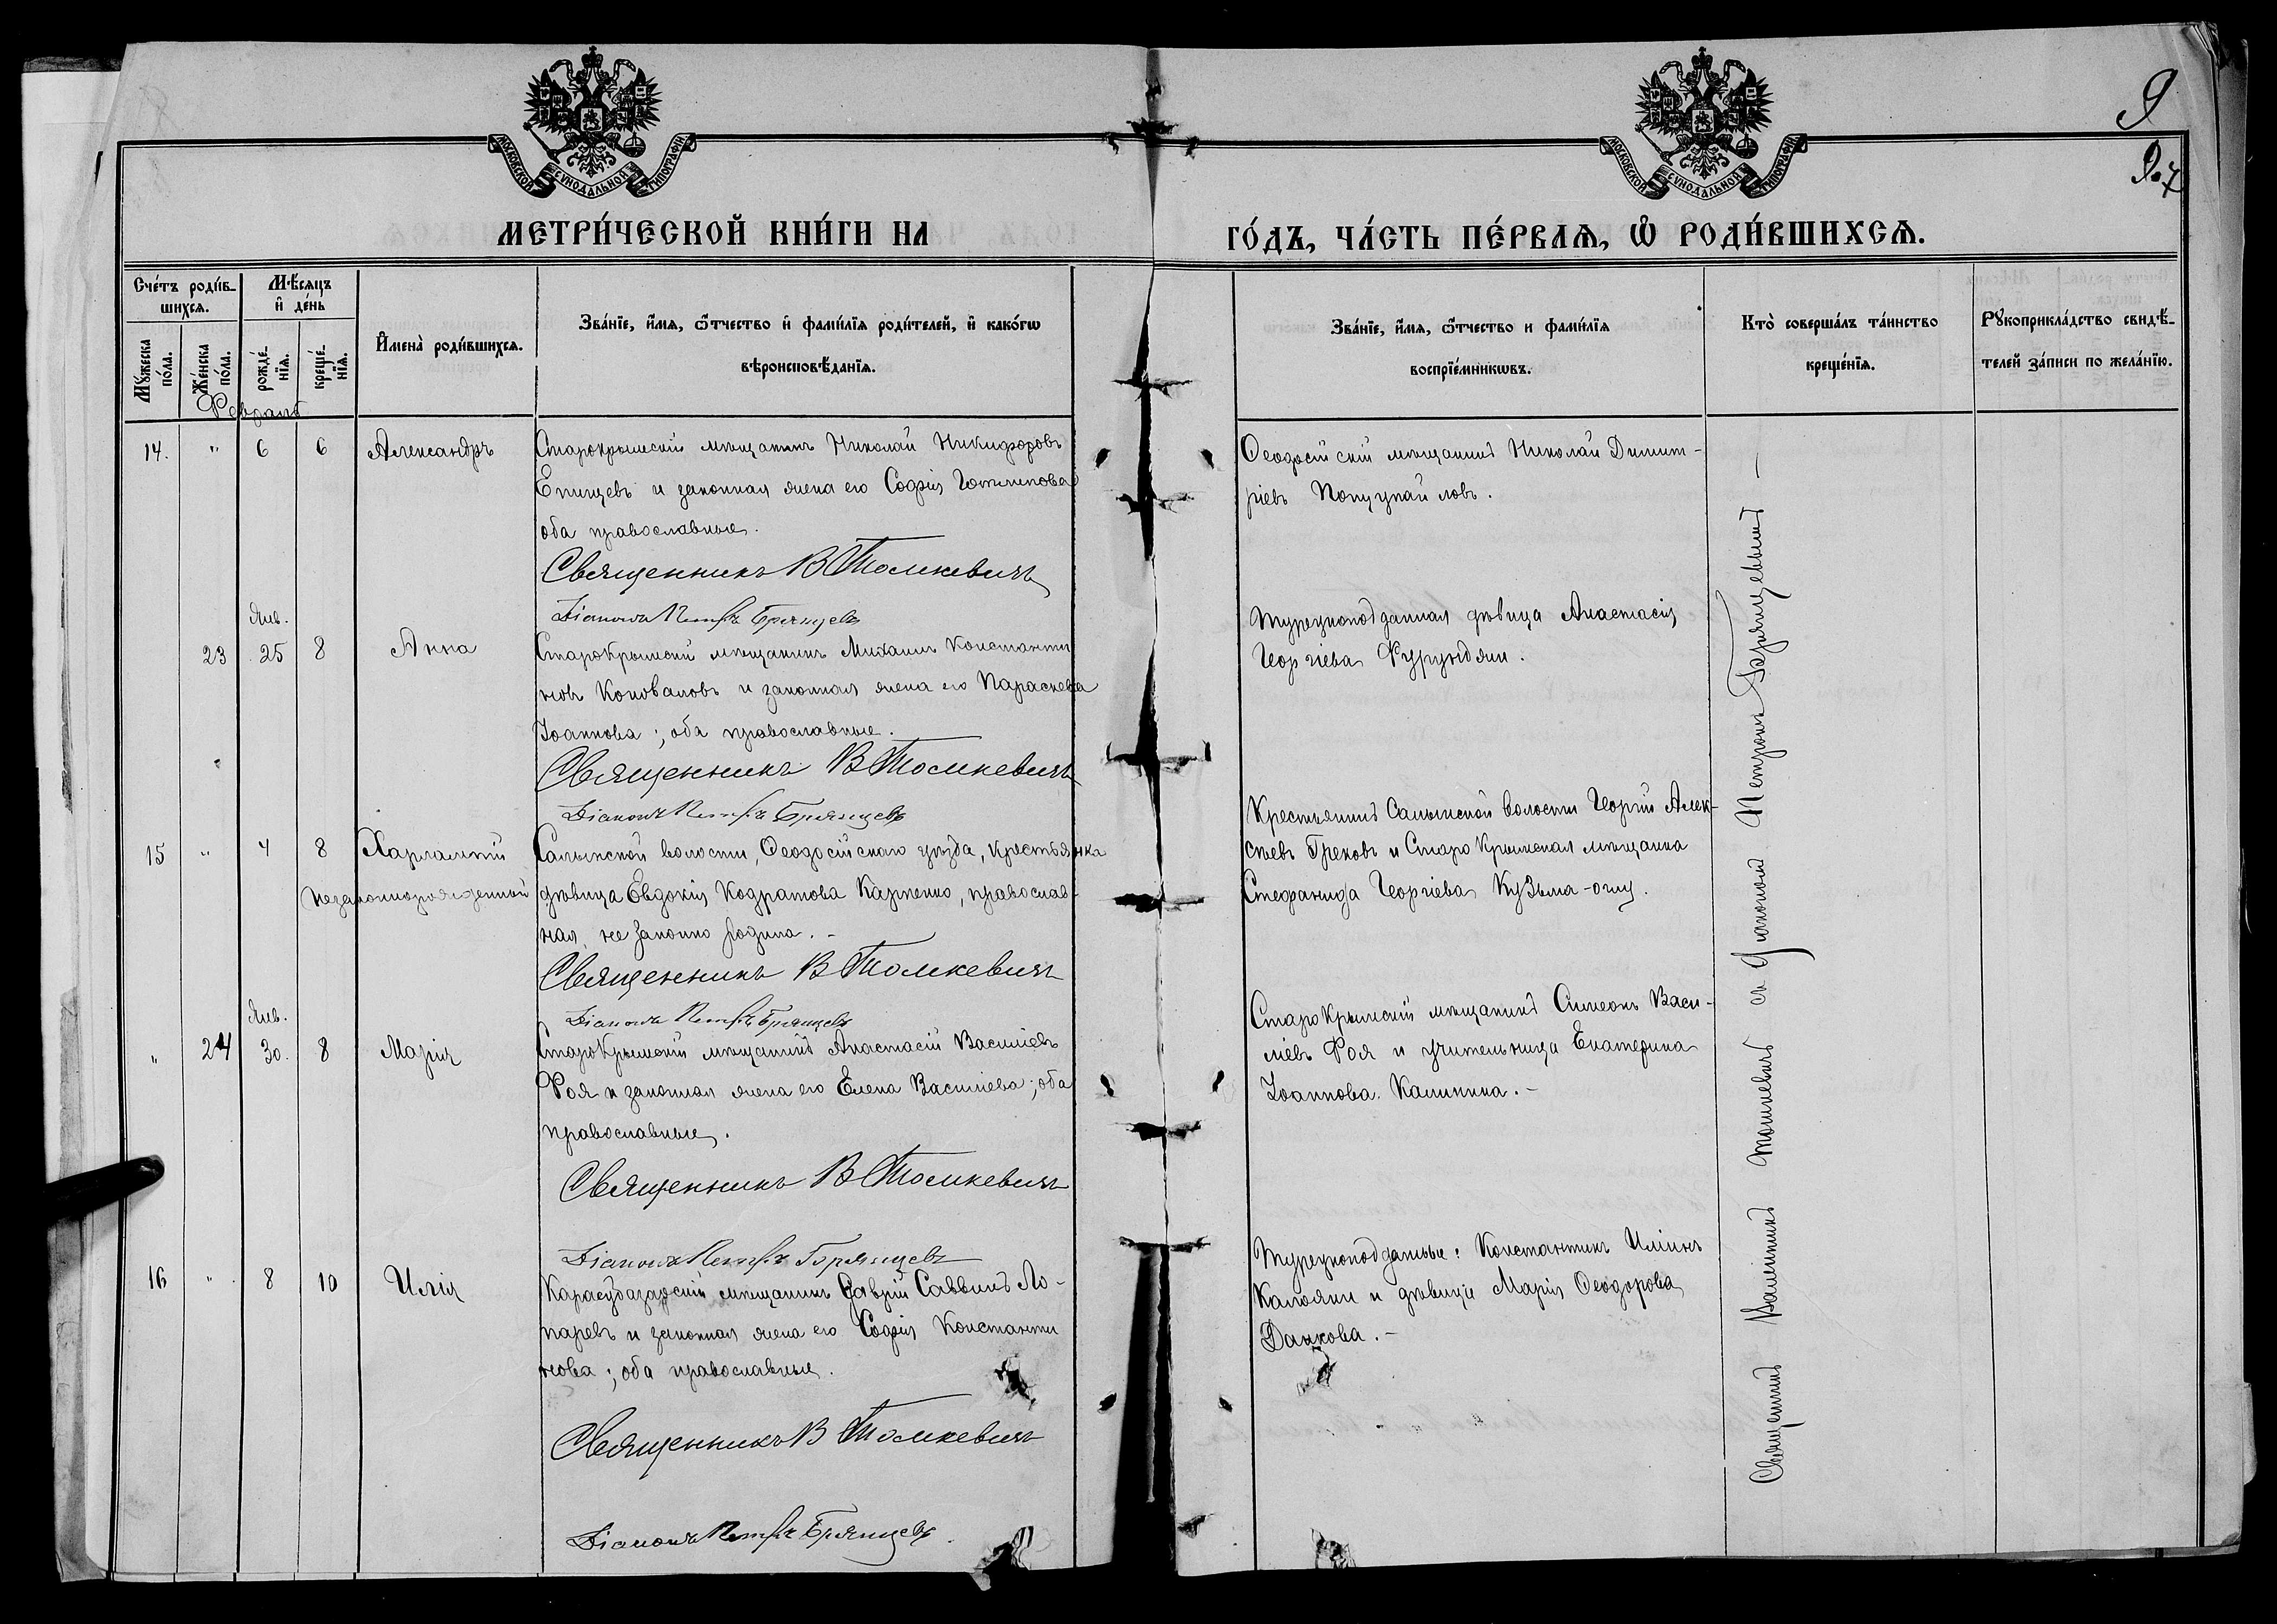 9
9. 7
МОСКОВСКОЙ СУНОДАЛЬНОЙ ТИПОГРАФІИ
МОСКОВСКОЙ СУНОДАЛЬНОЙ ТИПОГРАФІИ
МЕТРИ́ЧЕСКОЙ КНИ́ГИ НА
ГО́ДЪ, ЧА́СТЬ ПЕ́РВАѦ, Ѡ҆ РОДИ́ВШИХСѦ.
Сче́тъ роди́в-
шихсѧ.
Мѣ́сѧцъ
и҆ де́нь
Мꙋ́жеска
по́ла.
Же́нска
по́ла.
рожде́-
нїѧ.
креще́-
нїѧ.
И҆мена̀ роди́вшихсѧ.
Зва́нїе, и҆́мѧ, ѻ҆́тчество и҆ фами́лїѧ роди́телей, и҆ како́гѡ
вѣроисповѣ́данїѧ.
Зва́нїе, и҆́мѧ, ѻ҆́тчество и фами́лїѧ
воспрїе́мникѡвъ.
Кто̀ соверша́лъ та́инство
креще́нїѧ.
Рꙋкоприкла́дство свидѣ́-
телей за́писи по жела́нїю.
Февраль
14. " 6 6 Александръ
Старокрымскій мѣщанинъ Николай Никифоровъ
Епищевъ и законная жена его Софія
оба православные.
Священникъ В Томкевичъ
Діаконъ Петръ Брянцевъ
Ѳеодосійскій мѣщанинъ Николай Димит-
ріевъ
Янв.
23 25 8 Анна
Старокрымскій мѣщанинъ Михаилъ Константи
новъ Коноваловъ и законная жена его Параскева
Іоаннова; оба православные.
Священникъ В Томкевичъ
Діаконъ Петръ Брянцевъ
Турецкоподданная дѣвица Анастасія
Георгіева Фурунджи.
15 " 4 8 Харлампій
незаконнорожденный
Салынской волости, Ѳеодосійскаго уѣзда, крестьянка
дѣвица Евдокія Кодратова Карпенко, православ-
ная, не законно родила. -
Священникъ В Томкевичъ
Діаконъ Петръ Брянцевъ
Крестьянинъ Салынской волости Георгій Алек-
сѣевъ Грековъ и Старо Крымская мѣщанка
Стефанида Георгіева Кузьма-оглу.
Янв.
" 24 30. 8 Марія
СтароКрымскій мѣщанинъ Анастасій Василіевъ
Фоя и законная жена его Елена Василіева; оба
православные.
Священникъ В Томкевичъ
Діаконъ Петръ Брянцевъ
СтароКрымскій мѣщанинъ Симеонъ Васи-
ліевъ Фоя и учительница Екатерина
Іоаннова Калинина. -
16 " 8 10 Илія
Карасубазарскій мѣщанинъ Саввинъ Ло-
паревъ и законная жена его Софія Константи
нова; оба православные.
Священникъ В Томкевичъ
Діаконъ Петръ Брянцевъ
Турецкоподданные: Константинъ Иліинъ
и дѣвица Марія Ѳеодорова
Данкова. -
Священникъ Валентинъ Томкевичъ съ Діакономъ Петромъ Брянцевымъ